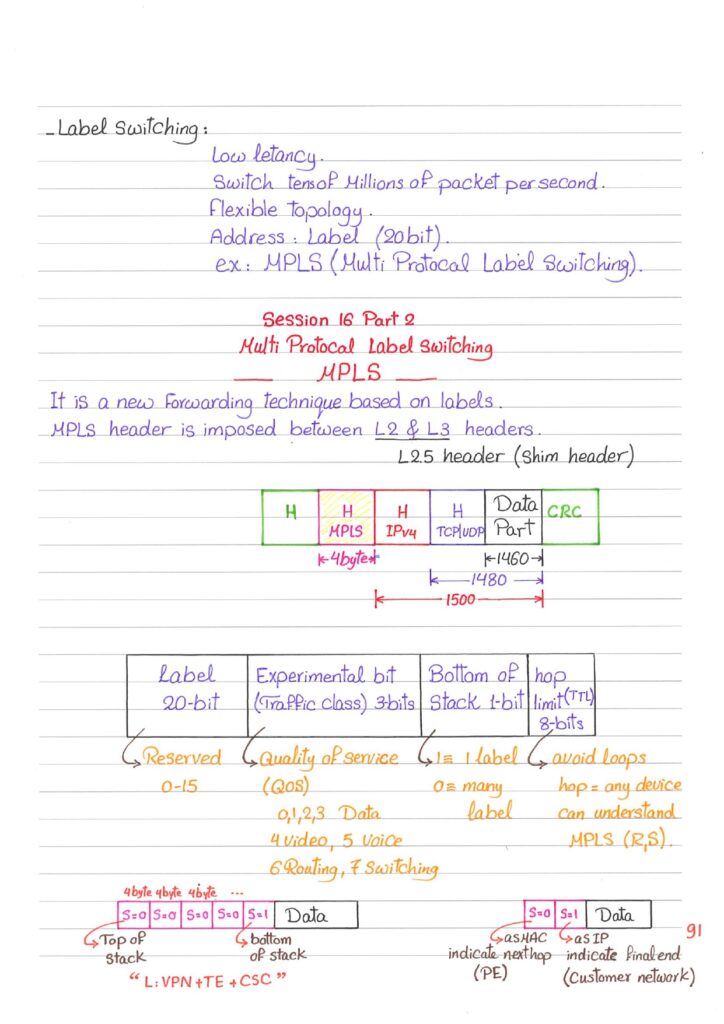 - Label Switching:
Low letancy.
Switch tens of Millions of packet per second.
Flexible topology.
Address: Label (20bit).
ex: MPLS (Multi Protocal Label Switching).
Session 16 Part 2
Multi Protocal Label Switching
MPLS
It is a new Forwarding technique based on labels.
MPLS header is imposed between L2 & L3 headers.
L2.5 header (Shim header)
H H H H Data CRC
MPLS IPv4 TCP|UDP Part
4byte 1460
1480
1500
Label Experimental bit Bottom of hop
20-bit (Traffic class) 3-bits Stack 1-bit limit (TTL)
8-bits
Reserved Quality of service 1≡ 1 label avoid loops
0-15 (QOS) 0≡ many hop = any device
0,1,2,3 Data label can understand
4 Video, 5 Voice MPLS (R,S).
6 Routing, 7 Switching
4byte 4byte 4byte ...
S=0 S=0 S=0 S=0 S=1 Data S=0 S=1 Data
91
Top of bottom as MAC as IP
stack of stack indicate next hop indicate final end
(PE) (Customer network)
"L: VPN + TE + CSC"